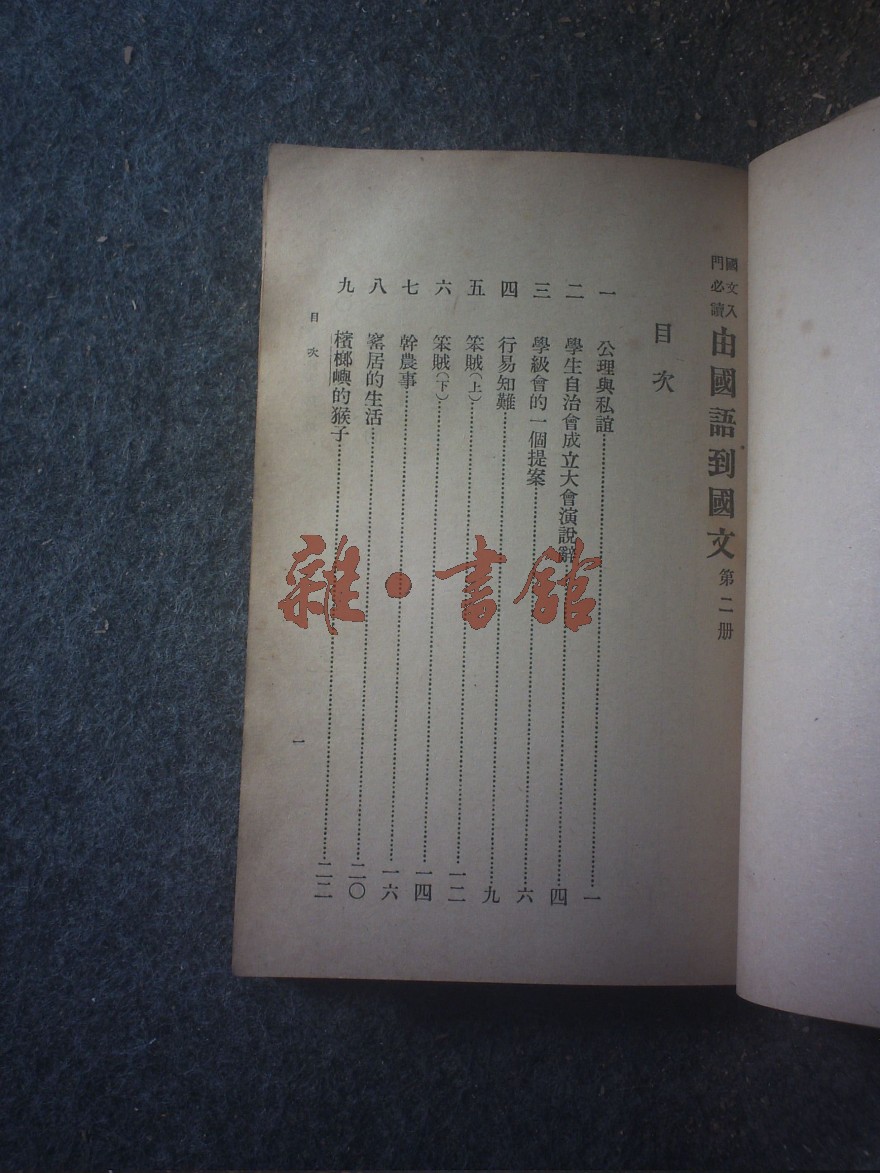 國文入門必讀 由國語到國文 第二册
目次
一 公理與私誼 一
二 學生自治會成立大會演說辭 四
三 學級會的一個提案 六
四 行易知難 九
五 笨賊(上) 一二
六 笨賊(下) 一四
七 幹農事 一六
八 窰居的生活 二〇
九 檳榔嶼的猴子 二二
目次
一
雜·書館